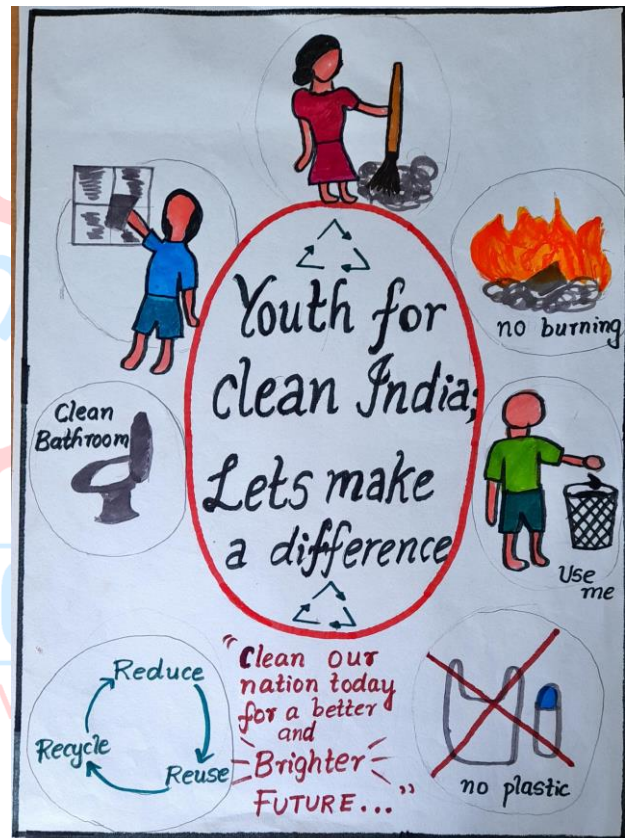 Youth for
clean India;
Lets make
a difference
no burning
Clean
Bathroom
Use
me
Reduce
Reuse
Recycle
"Clean our
nation today
for a better
and
Brighter
FUTURE..."
no plastic